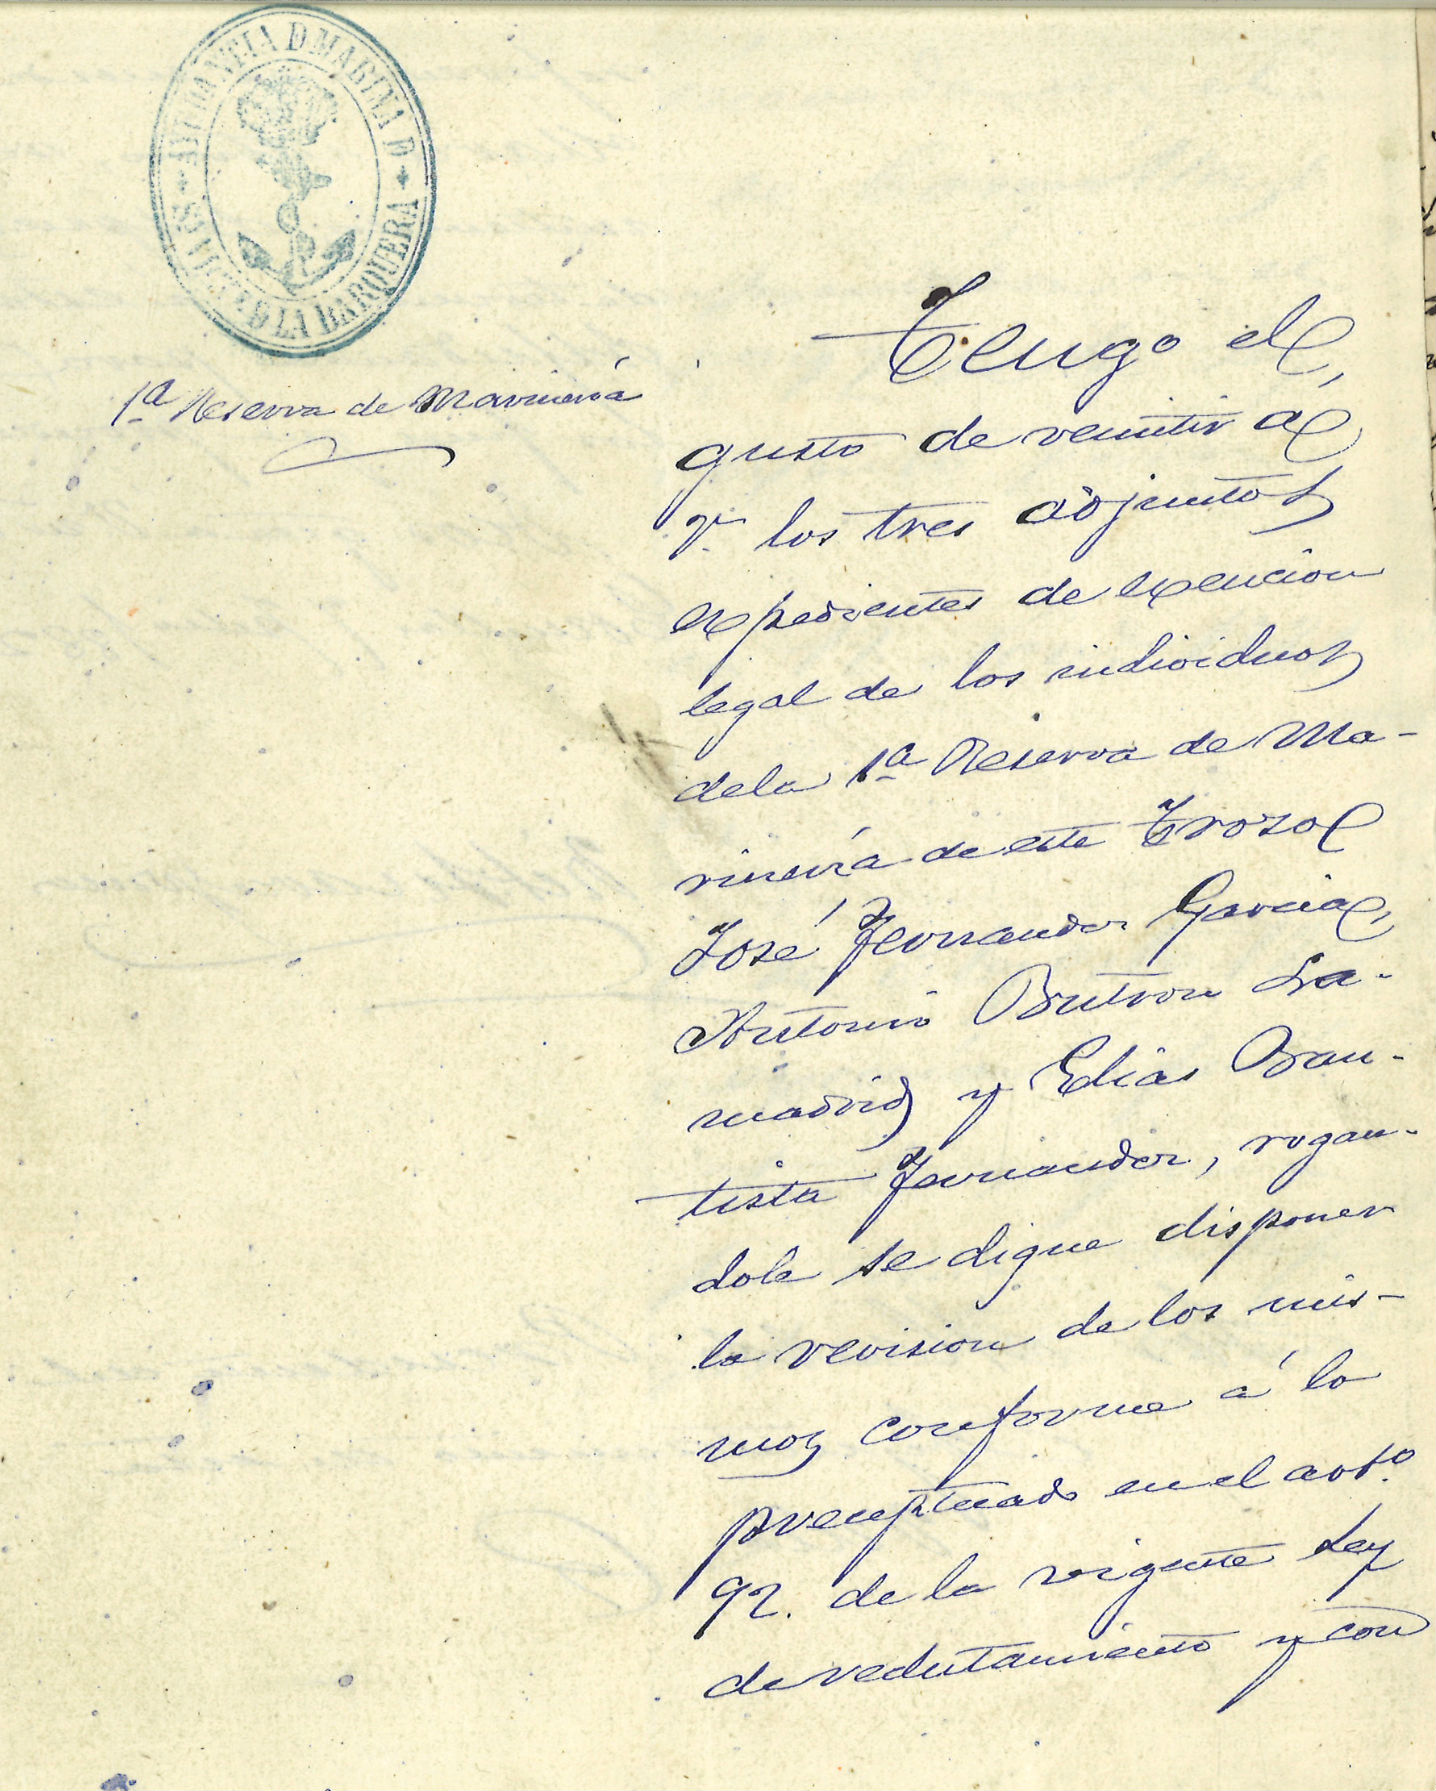 AYUDANTIA D MARINA D
SN VICTE D LA BARQUERA
1ª Reserva de Marinería
Tengo el
gusto de remitir a
V. los tres adjuntos
expedientes de exencion
legal de los individuos
de la 1ª Reserva de Ma-
rinería de este Trozo
José Fernandez Garcia,
Antonio Butron La-
madrid y Elias Bau-
tista Fernandez, rogan-
dole se digne disponer
la revision de los mis-
mos conforme á lo
preceptuado en el artº.
92. de la vigente Ley
de reclutamiento y con